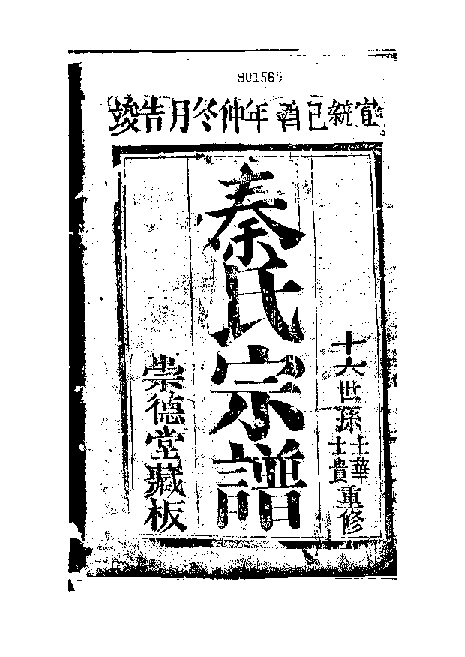 801569
宣統己酉年仲冬月吉竣
十六世孫士華士貴重修
秦氏宗譜
崇德堂藏板